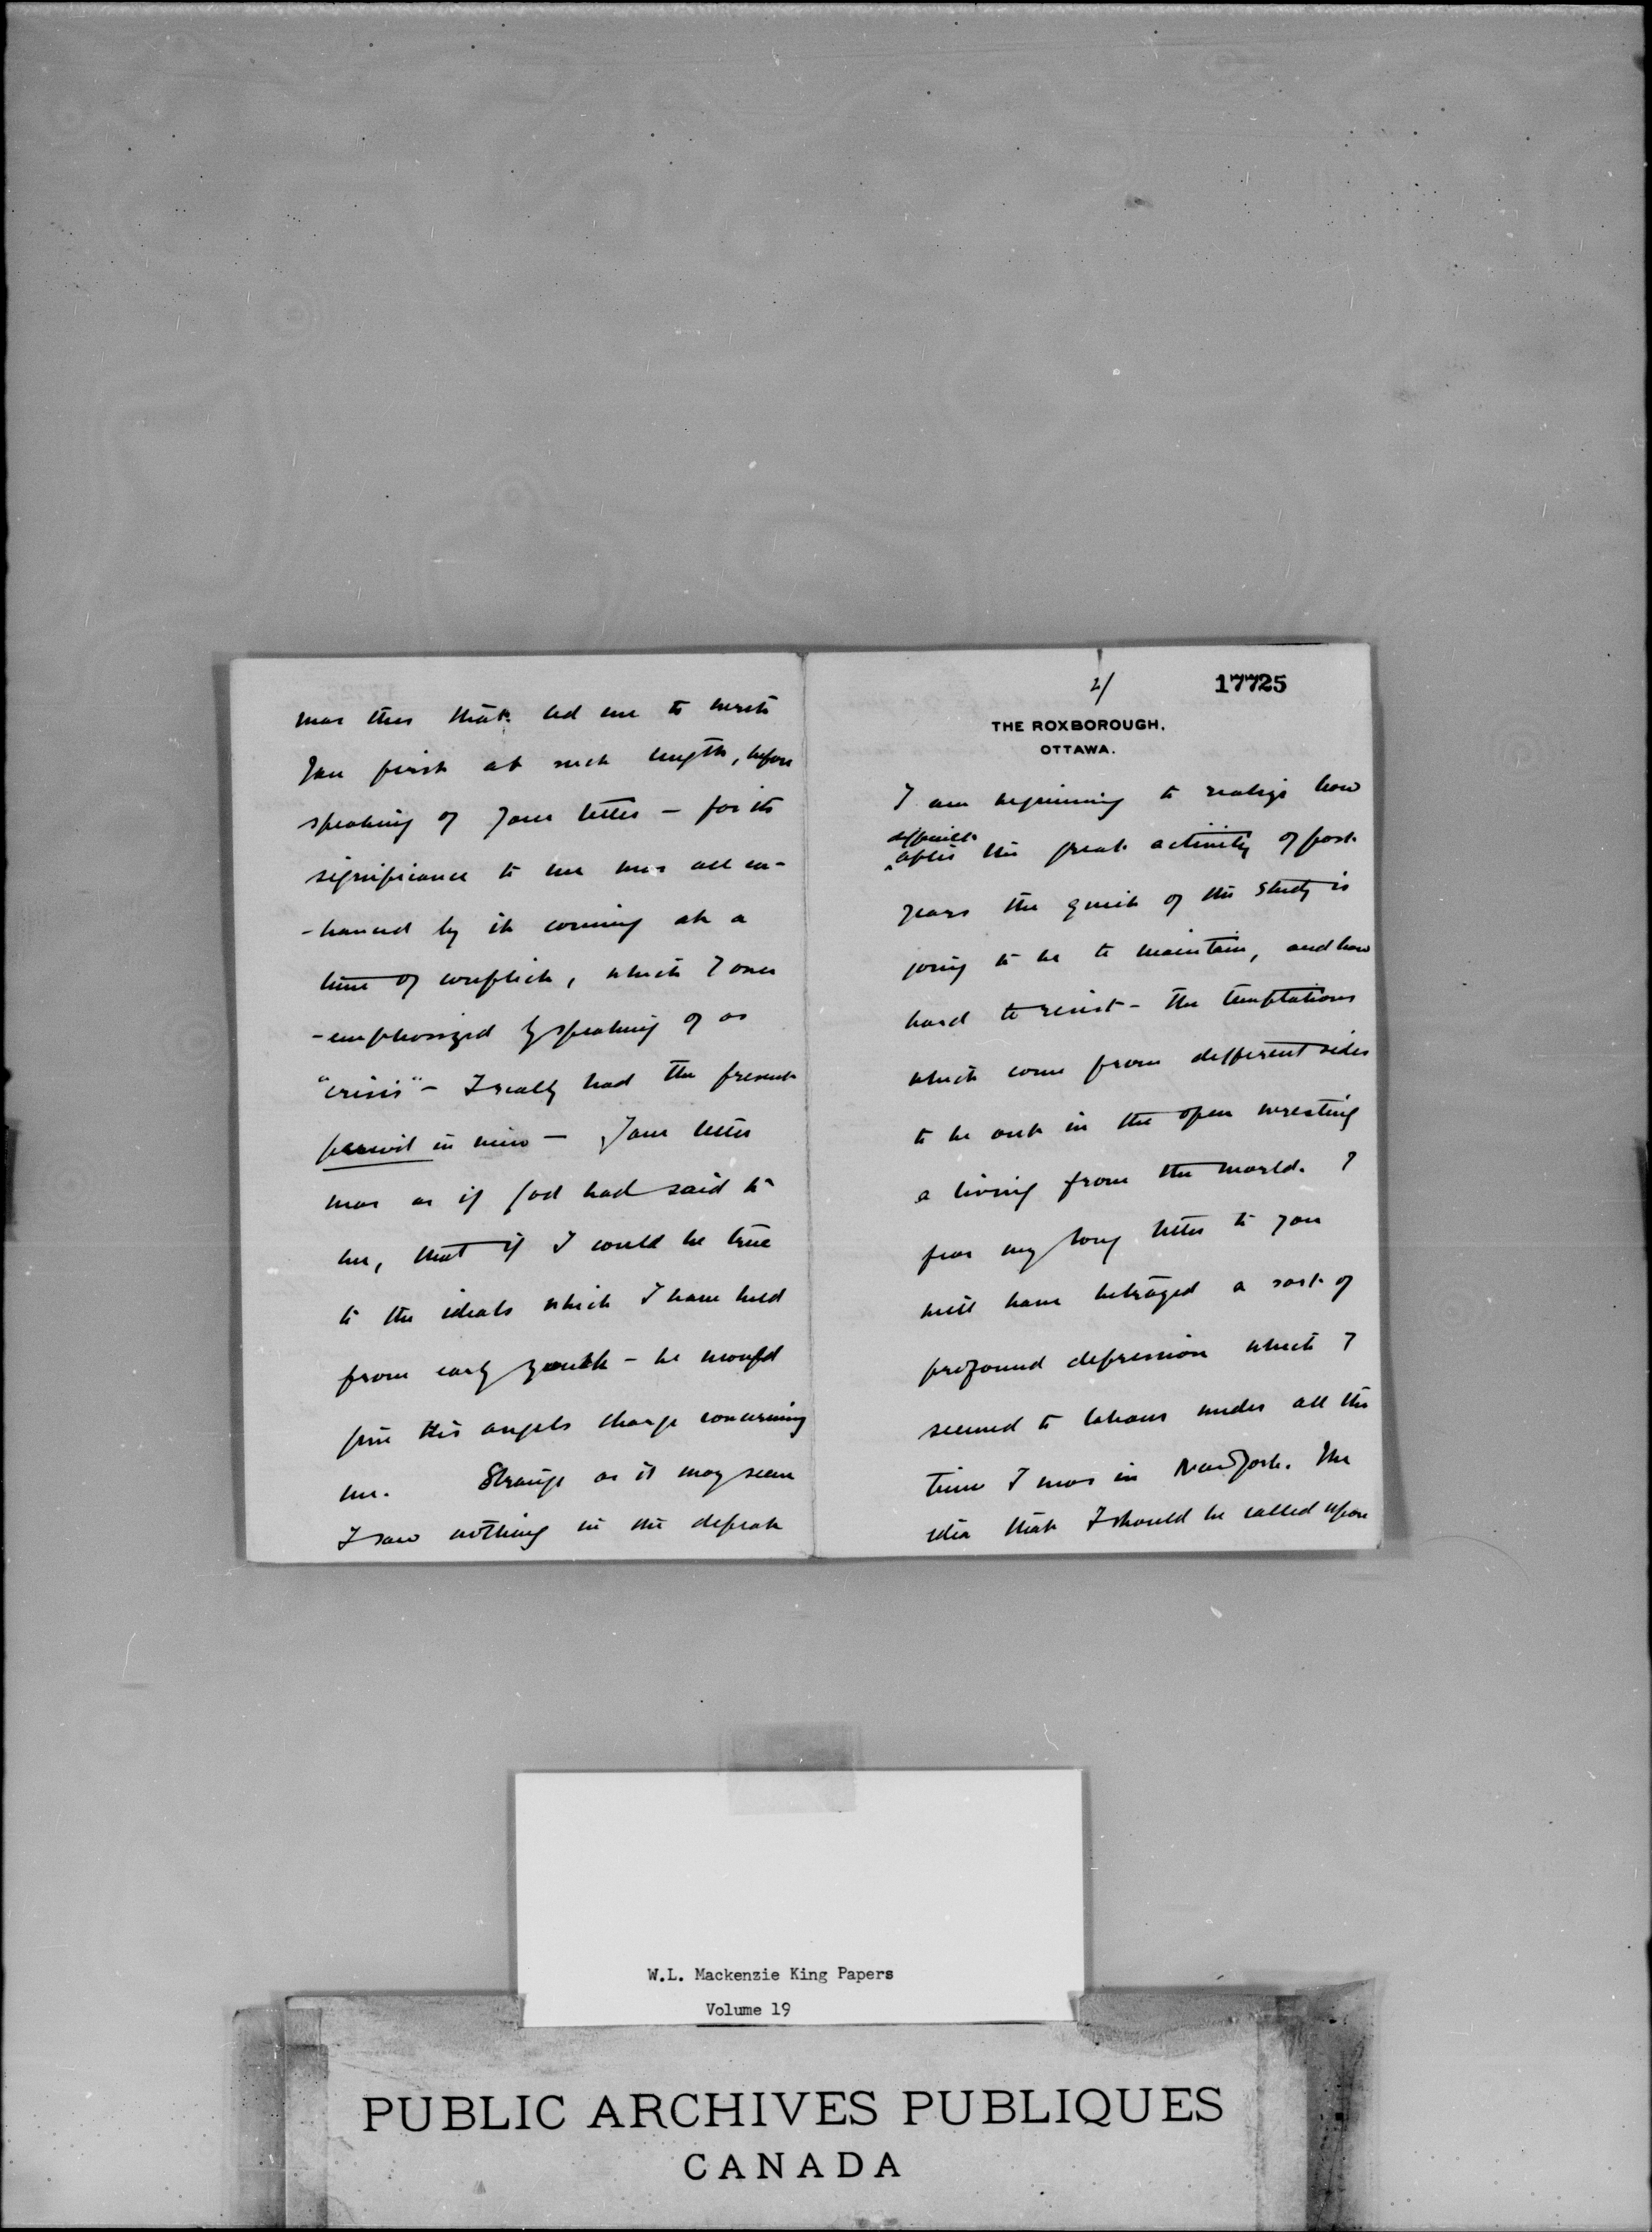 was this that led me to write
you first at such length, before
speaking of your letter – for its
significance to me was all en-
-hanced by its coming at a
time of conflict, which I over
-emphasized by speaking of as
"crisis" – I really had the present
in view – Your letter
was as if God had said to
me, that if I could be true
to the ideals which I have held
from early youth – he would
give His angels charge concerning
me. Strange as it may seem
I saw nothing in the defeat
2/
17725
THE ROXBOROUGH,
OTTAWA.
I am beginning to realize how
difficult
after the great activity of past
years the quiet of the study is
going to be to maintain, and how
hard to resist – the temptations
which come from different sides
to be out in the open wresting
a living from the world. I
fear my long letter to you
will have betrayed a sort of
profound depression which I
seemed to labour under all the
time I was in New York. The
idea that I should be called upon
W.L. Mackenzie King Papers
Volume 19
PUBLIC ARCHIVES PUBLIQUES
CANADA